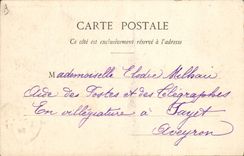 CARTE POSTALE
Ce côté est exclusivement réservé à l'adresse
Mademoiselle Elodie Milhau
Aide des Postes et des Télégraphes
En villégiature à Fayet
Aveyron